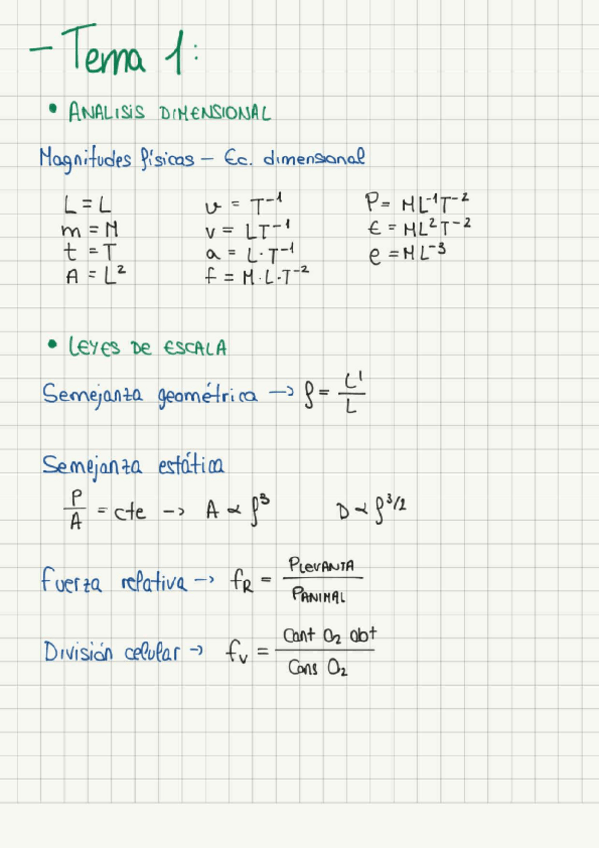 - Tema 1:
• ANALISIS DIMENSIONAL
Magnitudes físicas - Ec. dimensional
L = L    ν = T⁻¹    P = ML⁻¹T⁻²
m = M    v = LT⁻¹    E = ML²T⁻²
t = T    a = L·T⁻¹    ρ = ML⁻³
A = L²    f = M·L·T⁻²
• LEYES DE ESCALA
Semejanza geométrica -> ρ = L'/L
Semejanza estática
P/A = cte -> A ∝ ρ³    D ∝ ρ³/²
Fuerza relativa -> fR = PLEVANTA/PANIMAL
División celular -> fv = Cant O₂ abt/Cons O₂